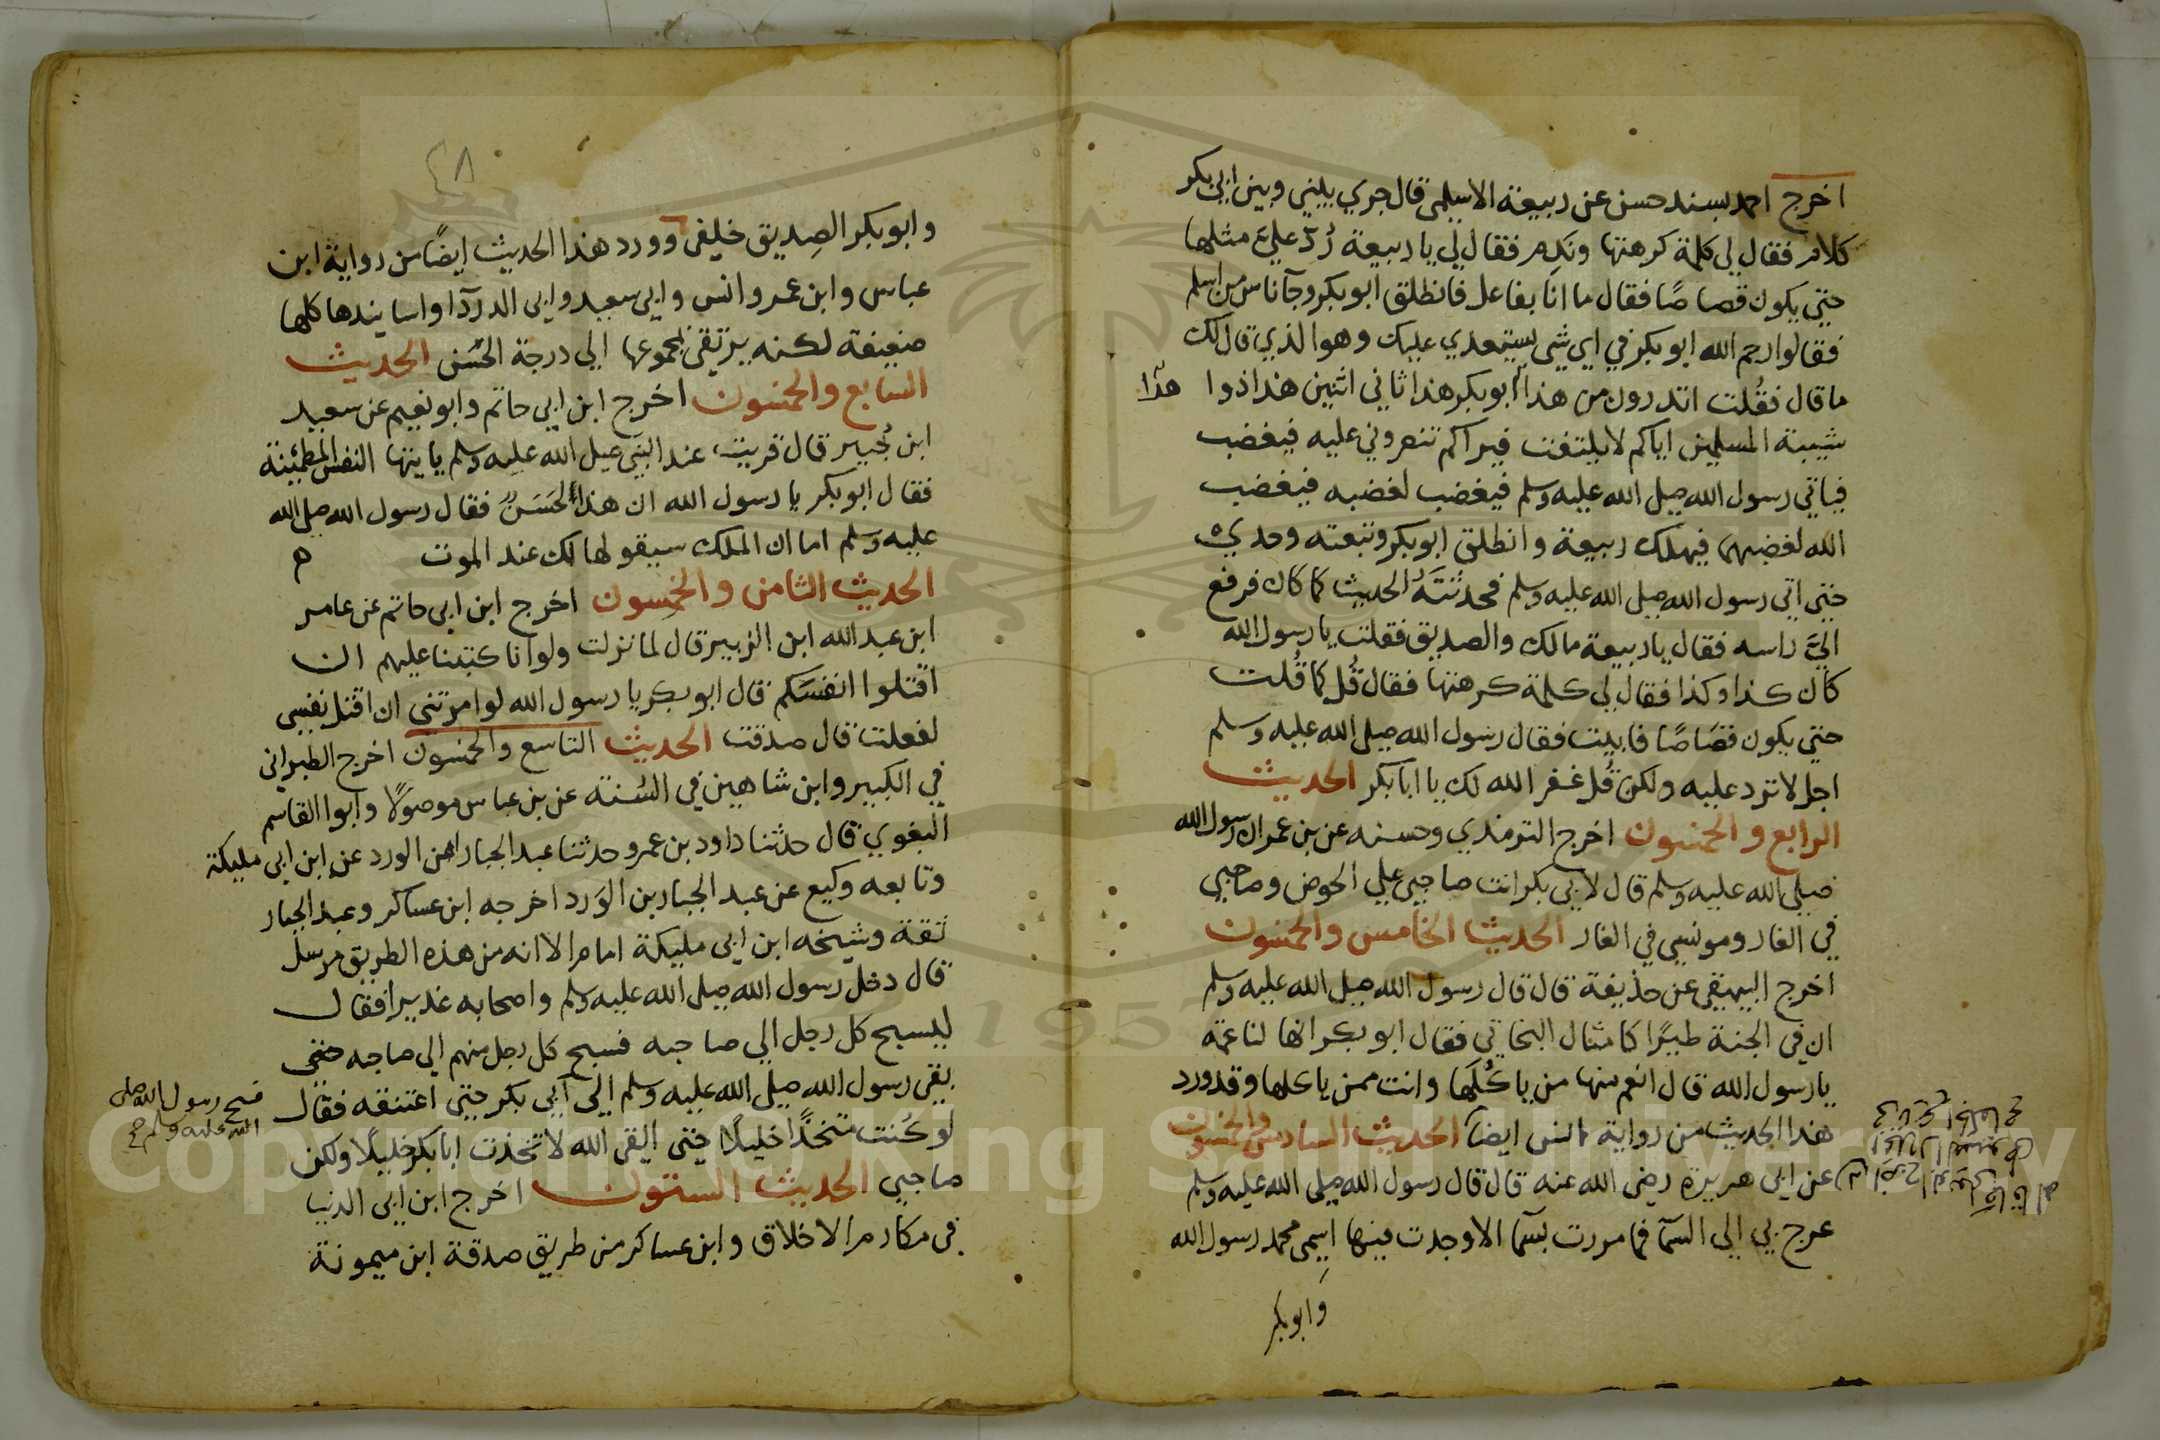 اخرج احمد بسند حسن عن ربيعة الاسلمي قال جري بيني وبين ابي بكر
كلام فقال لي كلمة كرهتها وندم فقال لي يا ربيعة رُدّ عليّ مثلها
حتي يكون قصاصًا فقال ما انا بفاعل فانطلق ابو بكر وجآ ناس من اسلم
فقالوا رحم الله ابو بكر في اي شي يستعدي عليك وهو الذي قال لك
ما قال فقُلت اتدرون من هذا ابو بكر هذا ثاني اثنين هذا ذوا هذا
شيبة المسلمين اياكم لا يلتفت فيراكم تنصروني عليه فيغضب
فياتي رسول الله صلي الله عليه وسلم فيغضب لغضبه فيغضب
الله لغضبهما فيهلك ربيعة وانطلق ابو بكر وتبعته وحدي
حتي اتي رسول الله صلي الله عليه وسلم فحدثته الحديث كما كان فرفع
اليّ راسه فقال يا ربيعة مالك والصديق فقلت يا رسول الله
كان كذا وكذا فقال لي كلمة كرهتها فقال قُل كما قُلت
حتي يكون قصَاصًا فابيت فقال رسول الله صلي الله عليه وسلم
اجل لا ترد عليه ولكن قُل غفر الله لك يا ابا بكر الحديث
الرابع والخمسون اخرج الترمذي وحسنه عن بن عمر ان رسول الله
صلي الله عليه وسلم قال لابي بكر انت صاحبي علي الحوض وصاحبي
في الغار ومونسي في الغار الحديث الخامس والخمسون
اخرج البيهقي عن حذيفة قال قال رسول الله صلي الله عليه وسلم
ان في الجنة طيرًا كامثال البخاتي فقال ابو بكر انها لناعمة
يا رسول الله قال انعم منها من ياكُلها وانت ممن ياكلها وقد ورد
هذا الحديث من رواية انس ايضًا الحديث السادس والخمسون
عن ابي هريرة رضي الله عنه قال قال رسول الله صلي الله عليه وسلم
عرج بي الي السمآ فما مررت بسمآ الا وجدت فيها اسمي محمد رسول الله
وابو بكر
٤٨
وابو بكر الصديق خليفي وورد هذا الحديث ايضًا من رواية ابن
عباس وابن عمر وانس وابي سعيد وابي الدردآ واسانيدها كلها
ضعيفة لكنه يرتقي بمجموعها الي درجة الحُسن الحديث
السابع والخمسون اخرج ابن ابي حاتم وابو نعيم عن سعيد
ابن جُبير قال قريت عند النبي صلي الله عليه وسلم يا يتها النفس المطمئنة
فقال ابو بكر يا رسول الله ان هذا لحَسَنٌ فقال رسول الله صلي الله
عليه وسلم اما ان الملك سيقولها لك عند الموت م
الحديث الثامن والخمسون اخرج ابن ابي حاتم عن عامر
ابن عبد الله ابن الزبير قال لما نزلت ولو انا كتبنا عليهم ان
اقتلوا انفسَكم قال ابو بكر يا رسول الله لو امرتني ان اقتل نفسي
لفعلت قال صدقت الحديث التاسع والخمسون اخرج الطبراني
في الكبير وابن شاهين في السُنة عن بن عباس موصولًا وابوا القاسم
البغوي قال حدثنا داود بن عمرو حدثنا عبد الجبار ابن الورد عن ابن ابي مليكة
وتابعه وكيع عن عبد الجبار بن الوَرد اخرجه ابن عساكر وعبد الجبار
ثقة وشيخه ابن ابي مليكة امام الا انه من هذه الطريق مرسل
قال دخل رسول الله صلي الله عليه وسلم واصحابه غديرا فقال
ليسبح كل رجل الي صاحبه فسبح كل رجل منهم الي صاحبه حتي
بقي رسول الله صلي الله عليه وسلم الي ابي بكر حتي اعتنقه فقال
فسبح رسول الله صلي
الله عليه وسلم صح
لو كُنت متخذًا خليلًا حتي القي الله لاتخذت ابا بكر خليلًا ولكن
صاحبي الحديث الستون اخرج ابن ابي الدنيا
في مكارم الاخلاق وابن عساكر من طريق صدقة ابن ميمونة
1957
Copyright © King Saud University